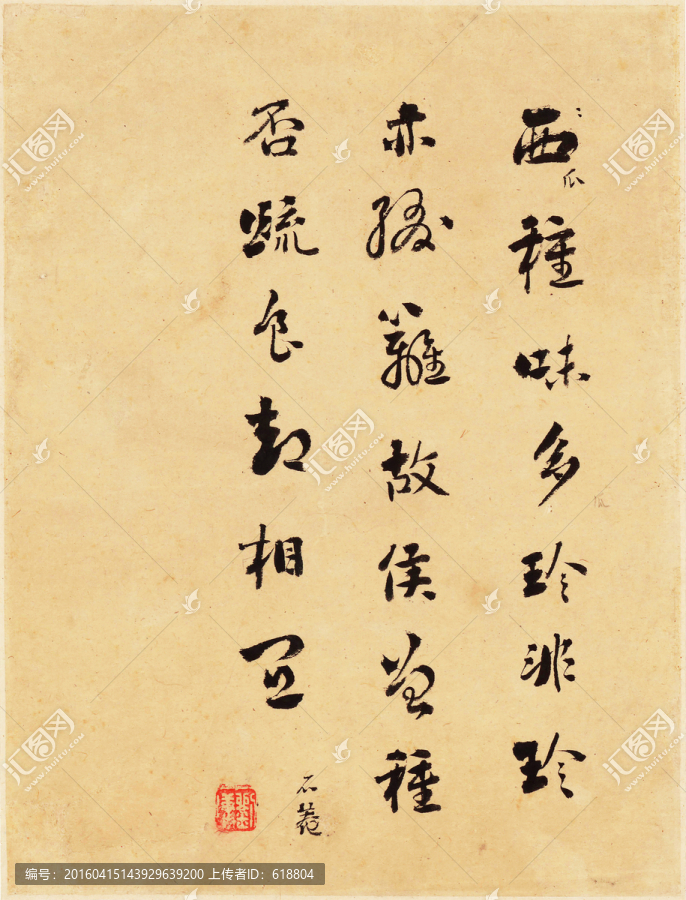 西瓜種味多珍非珍
亦綴籬故侯曾種
否疏食却相宜
石菴
汇图网
www.huitu.com
编号:20160415143929639200 上传者ID:618804